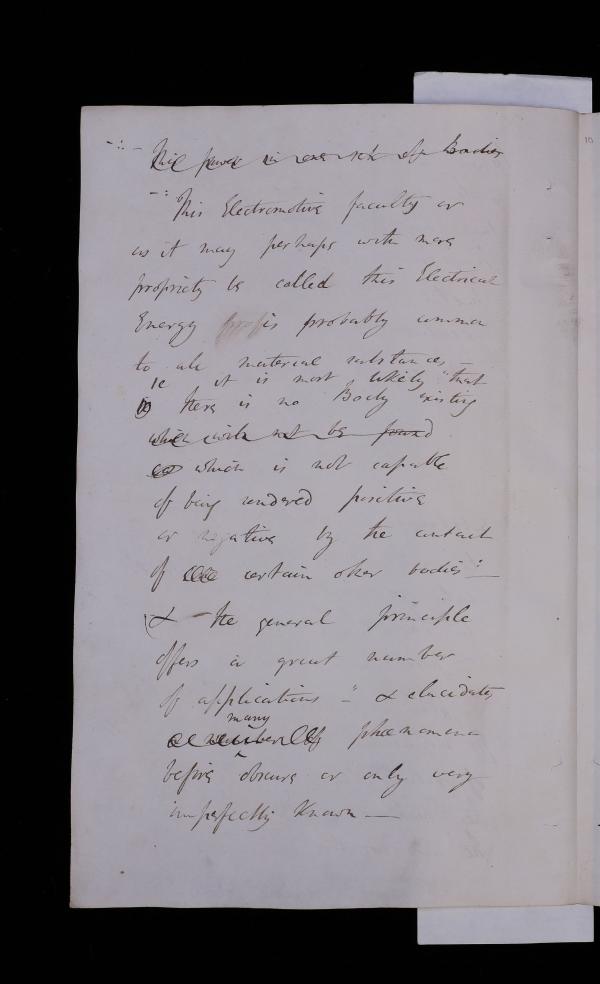 -:- This power in exer of Bodies
-:- This Electromotive faculty or
as it may perhaps with more
propriety be called this Electrical
Energy is probably common
to all material substances -
ie it is most likely "that
there is no Body existing
which will not be found
which is not capable
of being rendered positive
or negative by the contact
of certain other bodies":-
& - the general principle
offers a great number
of applications - " & elucidates
many
a number of phænomena
before ^ obscure or only very
imperfectly known -
10